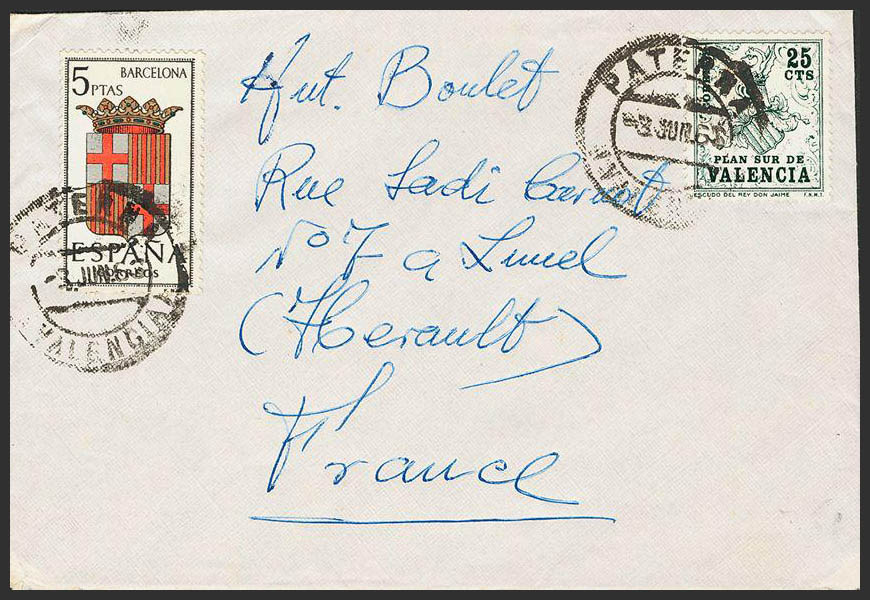 5
PTAS
BARCELONA
ESPAÑA
CORREOS
PATERNA
3 JUN.6
VALENCIA
25
CTS
PLAN SUR DE
VALENCIA
ESCUDO DEL REY DON JAIME F.N.M.T.
PATERNA
3 JUN.6
Ant. Boulet
Rue Sadi Carnot
Nº 7 a Lunel
(Herault)
France